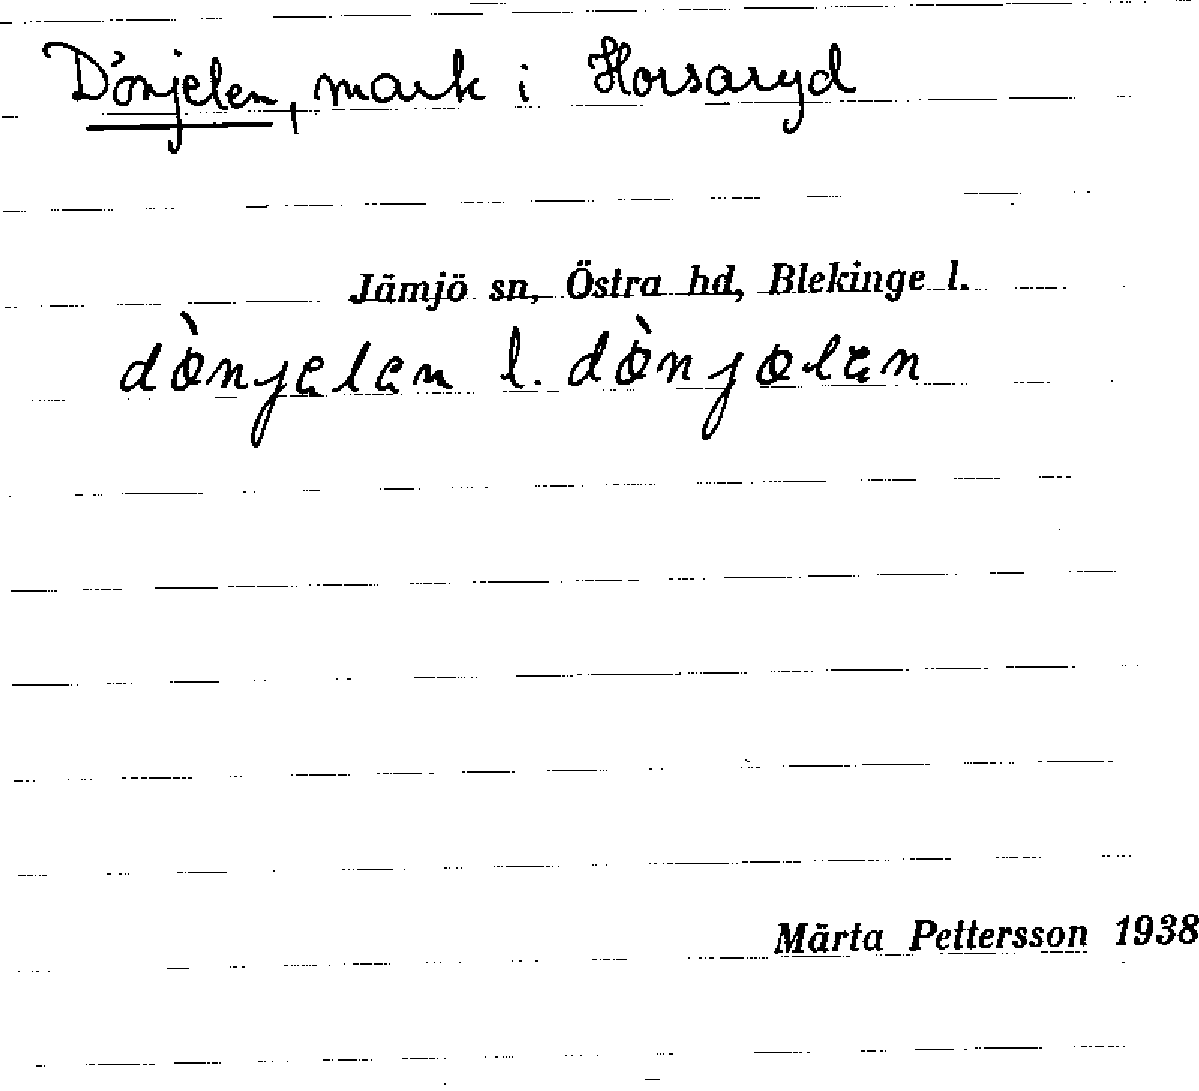 Dönjelen, mark i Horsaryd
Jämjö sn, Östra hd, Blekinge l.
dò̈njelen l. dò̈njølen
Märta Pettersson 1938